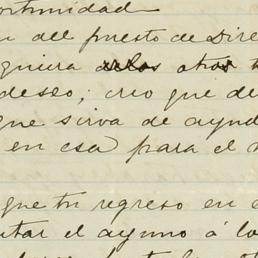 ortunidad
del puesto de Dire
quiera otros
deseo; creo que de
que sirva de ayud
en esa para el
que tu regreso en
tar el ayuno á lo